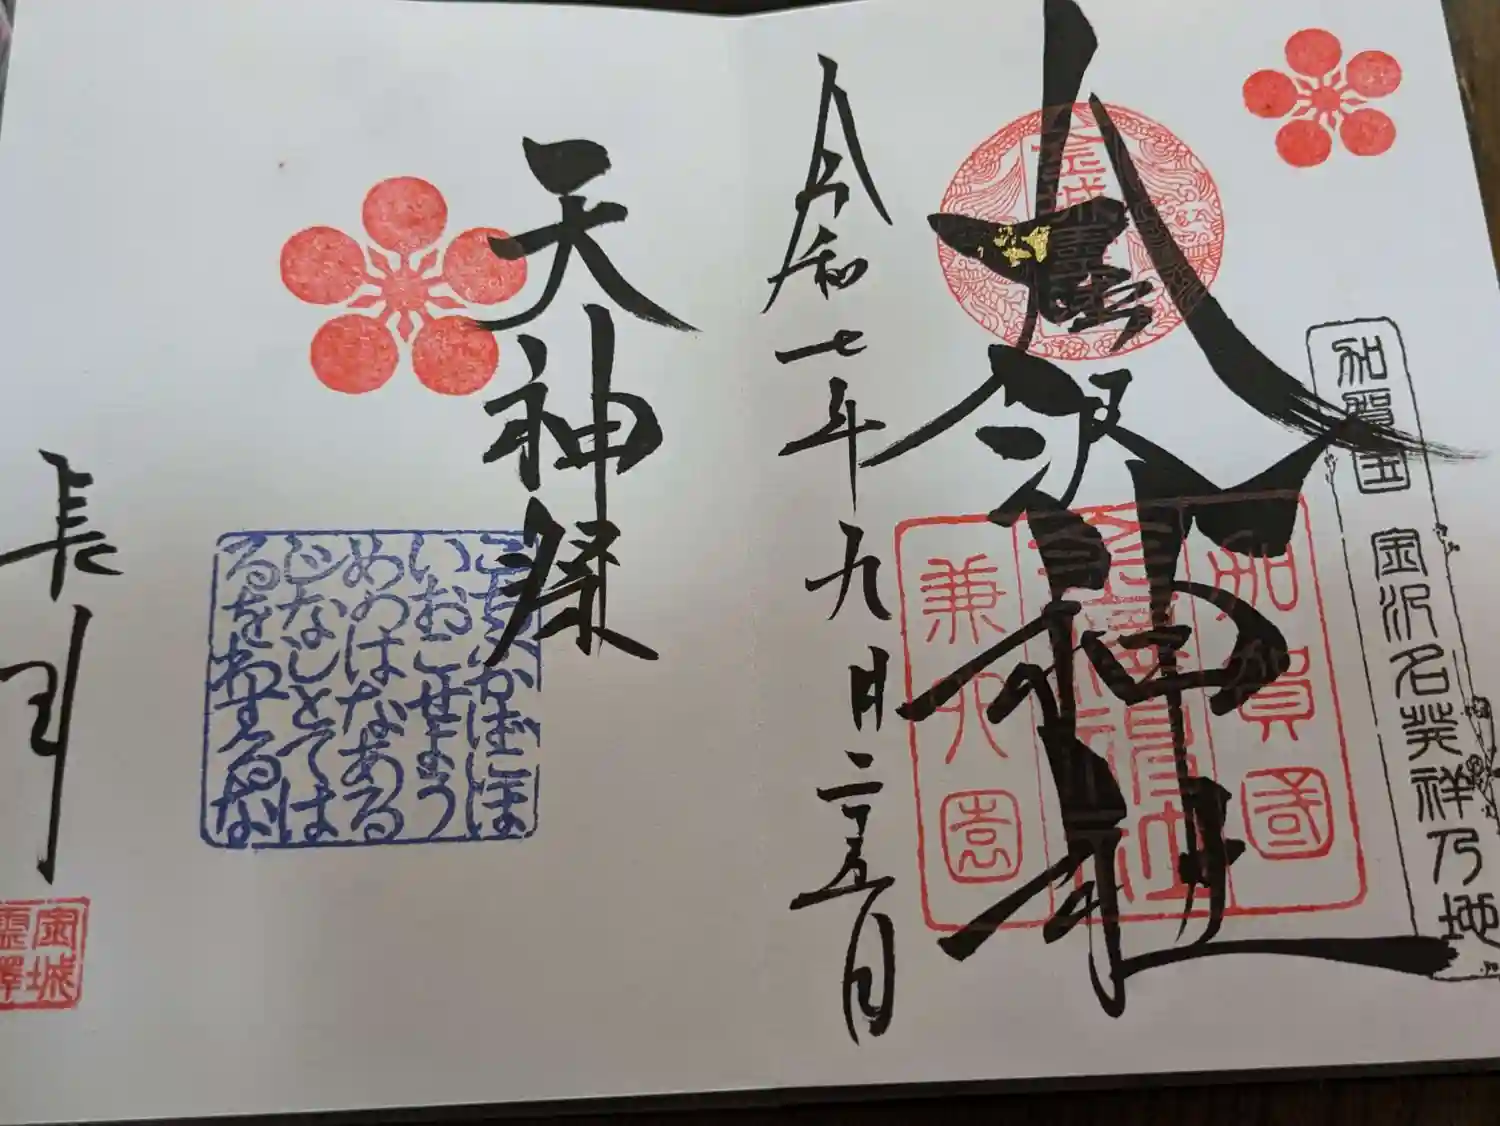 加賀国 金沢名発祥乃地
金澤神社
金城霊澤
加賀國
金澤神社
兼六園
令和七年九月二十五日
天神祭
こちふかばにほ
いおこせようう
めのはなある
じなしとては
るをわするな
長月
金城
霊澤